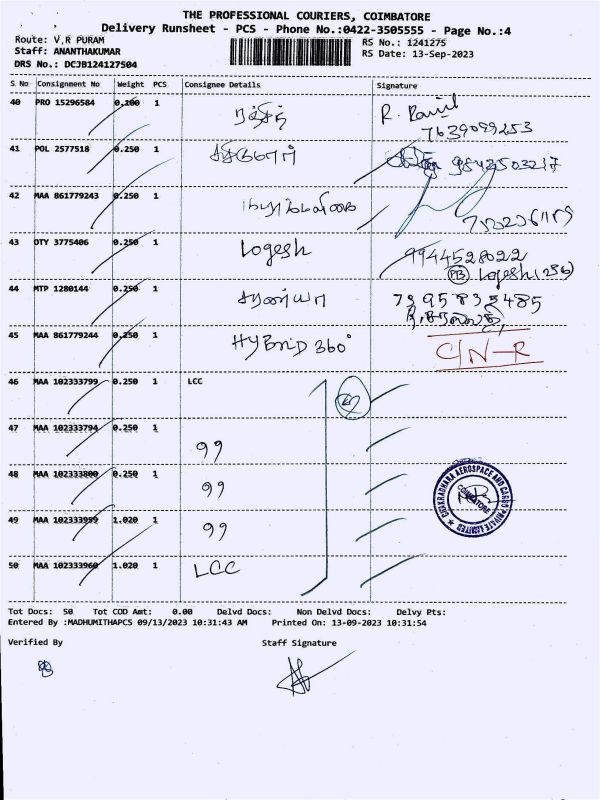 THE PROFESSIONAL COURIERS, COIMBATORE
Delivery Runsheet - PCS - Phone No.:0422-3505555 - Page No.:4
Route: V.R PURAM
RS No.: 1241275
Staff: ANANTHAKUMAR
RS Date: 13-Sep-2023
DRS No.: DCJB124127504
S. No Consignment No Weight PCS Consignee Details Signature
40 PRO 15296584 0.100 1
7639099253
41 POL 2577518 0.250 1 9842503217
42 MAA 861779243 0.250 1
43 OTY 3775406 0.250 1 Logesh 9944528022
Logesh
44 MTP 1280144 0.250 1 சரண்யா 7395835485
45 MAA 861779244 0.250 1 HYBRID 360° C/N-R
46 MAA 102333799 0.250 1 LCC
47 MAA 102333794 0.250 1 99
48 MAA 102333800 0.250 1 99
49 MAA 102333959 1.020 1 99
50 MAA 102333960 1.020 1 LCC
CHAKRADHARA AEROSPACE AND CARGO PRIVATE LIMITED
COIMBATORE
Tot Docs: 50 Tot COD Amt: 0.00 Delvd Docs: Non Delvd Docs: Delvy Pts:
Entered By :MADHUMITHAPCS 09/13/2023 10:31:43 AM Printed On: 13-09-2023 10:31:54
Verified By Staff Signature